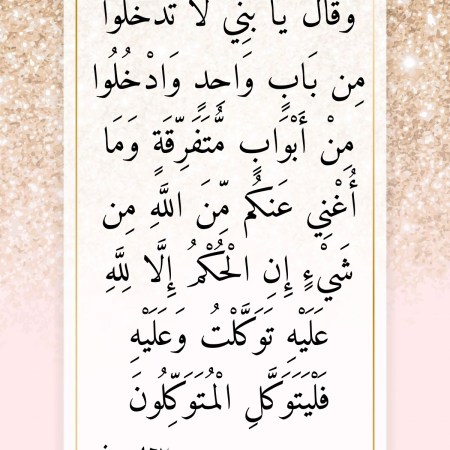 وَقَالَ يَا بَنِيَّ لَا تَدْخُلُوا
مِن بَابٍ وَاحِدٍ وَادْخُلُوا
مِنْ أَبْوَابٍ مُّتَفَرِّقَةٍ وَمَا
أُغْنِي عَنكُم مِّنَ اللَّهِ مِن
شَيْءٍ إِنِ الْحُكْمُ إِلَّا لِلَّهِ
عَلَيْهِ تَوَكَّلْتُ وَعَلَيْهِ
فَلْيَتَوَكَّلِ الْمُتَوَكِّلُونَ